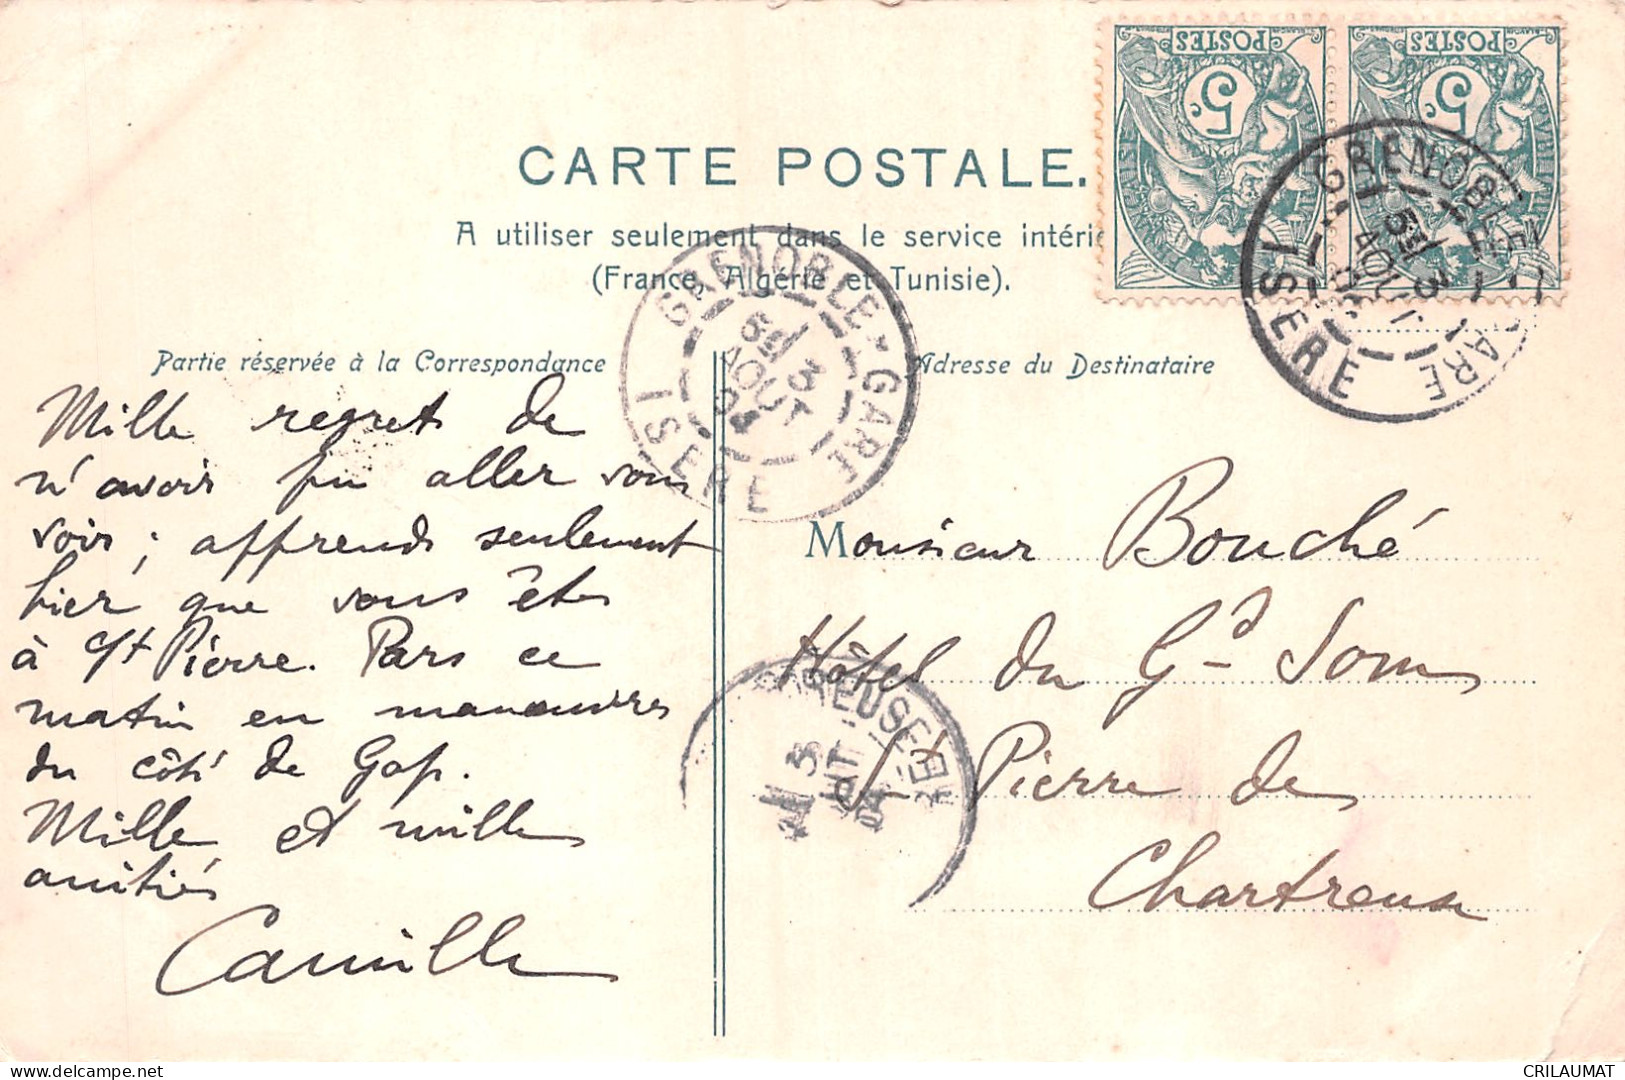 CARTE POSTALE.
A utiliser seulement dans le service intérie
(France, Algérie et Tunisie).
Partie réservée à la Correspondance
Mille regret de
n'avoir pu aller vous
voir; apprends seulement
hier que vous êtes
à St Pierre. Pars ce
matin en manœuvres
du côté de Gap.
Mille et mille
amitiés
Camille
Adresse du Destinataire
Monsieur Bouché
Hôtel du Gd Som
St Pierre de
Chartreuse
POSTES
5c
POSTES
5c
GRENOBLE-GARE
6E 3
AOUT
04
ISERE
GRENOBLE GARE
5E 3
AOUT
ISERE
3
04
CRILAUMAT